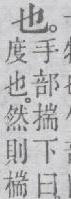 也。
手部揣下曰
度也。然則椯